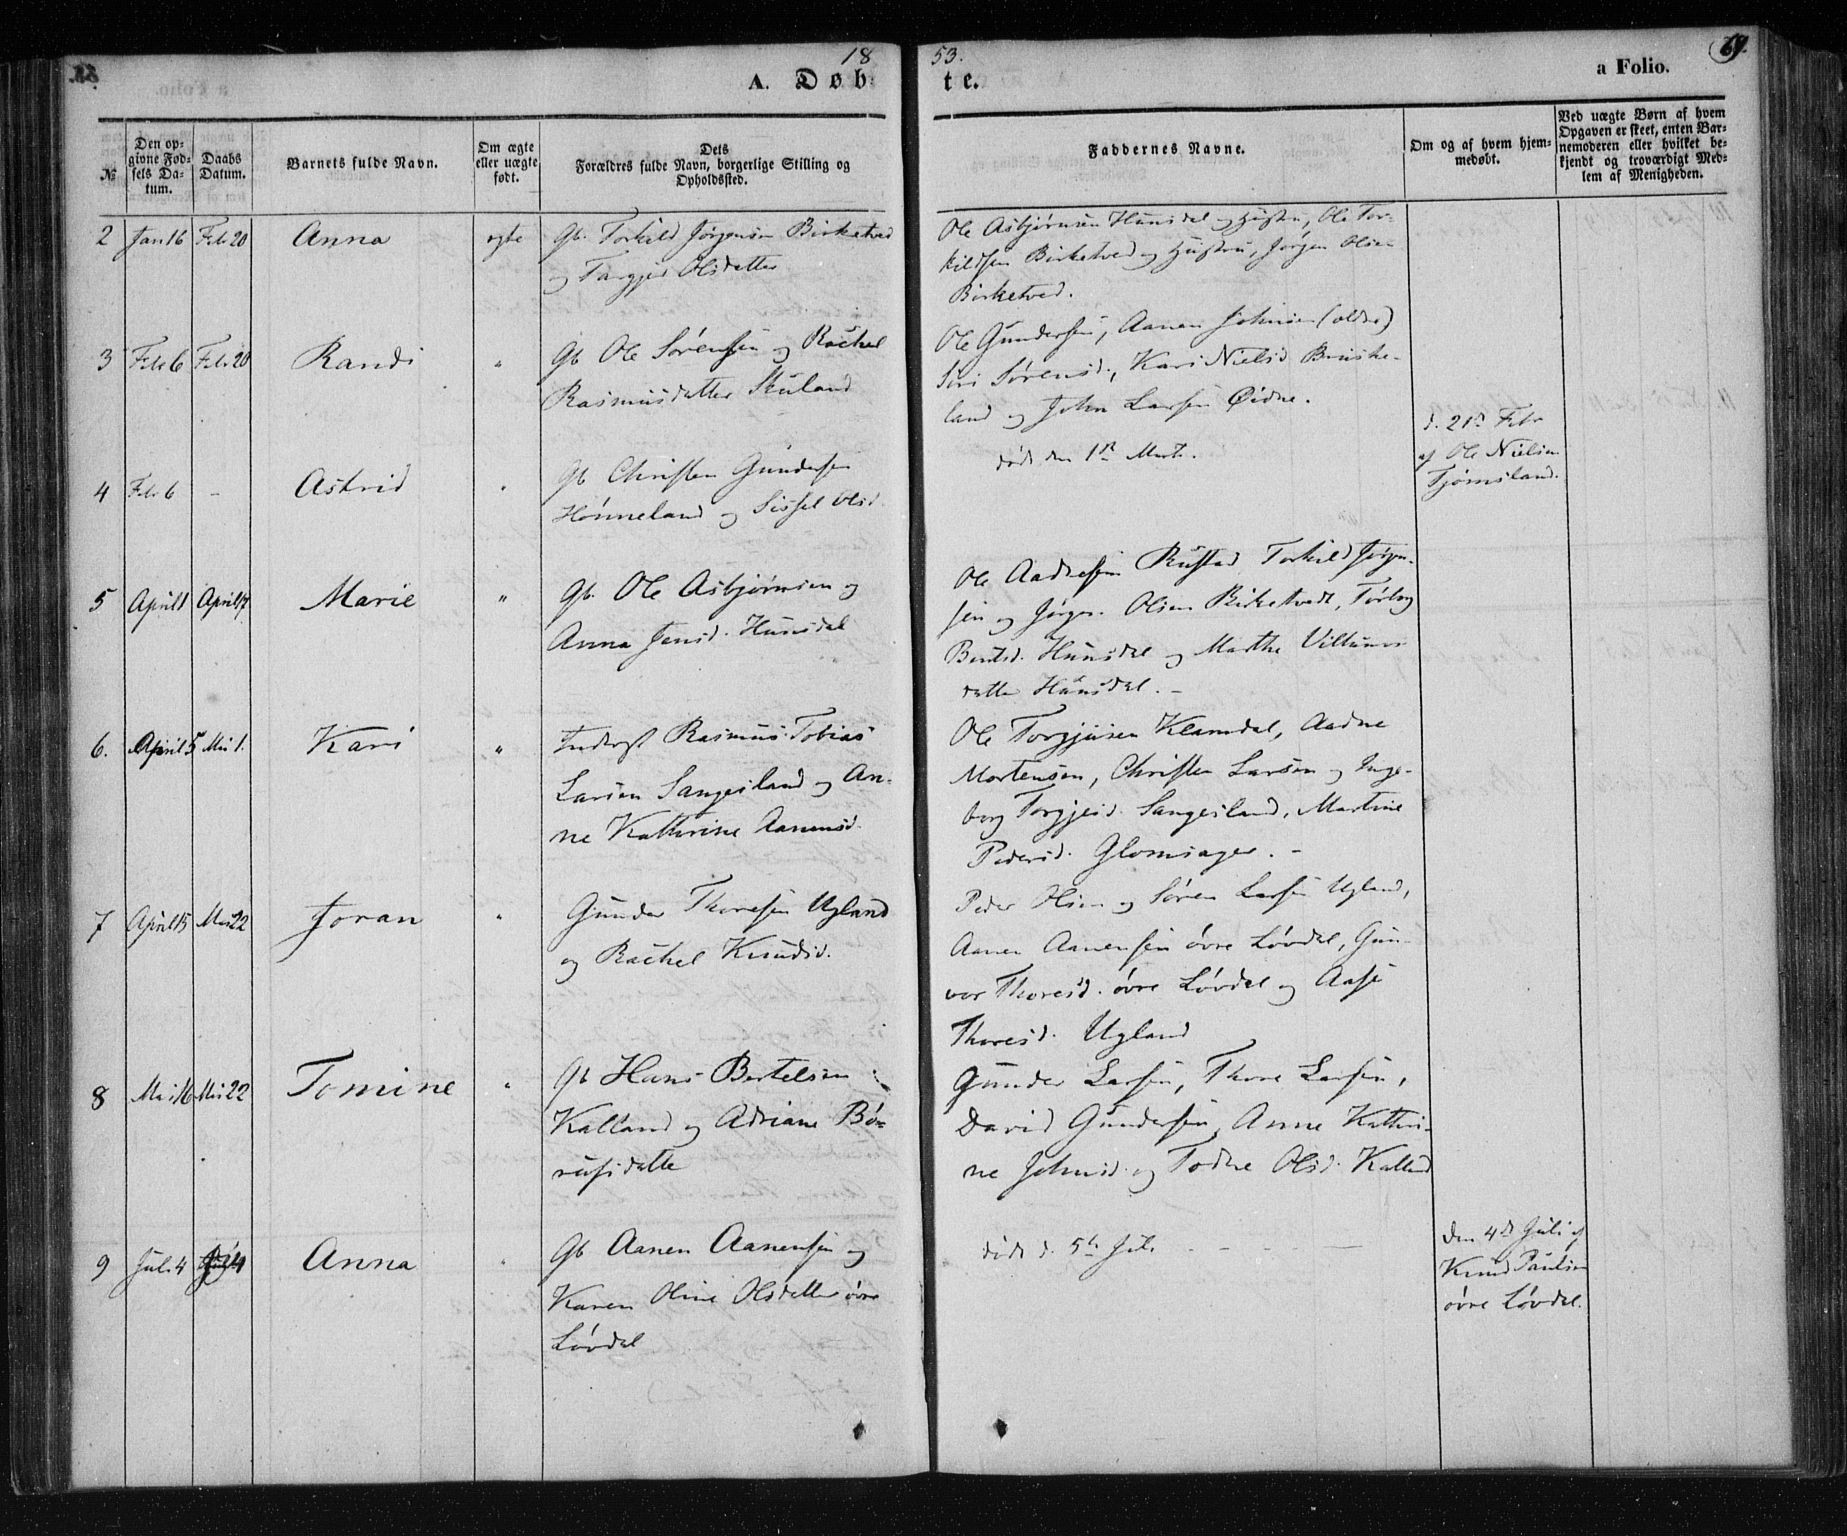 18 53.
A. Døbte.
a Folio.
69.
№
Den opgivne Fødsels Datum.
Daabs Datum.
Barnets fulde Navn.
Om ægte eller uægte født.
Dets Forældres fulde Navn, borgerlige Stilling og Opholdssted.
Faddernes Navne.
Om og af hvem hjemmedøbt.
Ved uægte Børn af hvem Opgaven er skeet, enten Barnemoderen eller hvilket bekjendt og troværdigt Medlem af Menigheden.
2 Jan 16 Feb 20 Anna ægte
Gb. Torkild Jørgensen Birketved
og Targjer Olsdatter
Ole Asbjørnsen Hunsdal og Hustru, Ole Tor-
kildsen Birketved og Hustru, Jørgen Olsen
Birketved.
3 Feb 6 Feb 20 Randi "
Gb Ole Sørensen og Rachel
Rasmusdatter Skuland
Ole Gundersen, Aanen Johnsen (ældre)
Siri Sørensd., Kari Nielsd Bruske-
land og John Larsen Øidne.
4 Feb 6 - Astrid "
Gb Christen Gundersen
Hønneland og Sissel Olsd.
død den 1ste Marts.
d. 21d Febr
af Ole Nielsen
Tjømsland.
5 April 1 April 17 Marie "
Gb. Ole Asbjørnsen og
Anna Jensd. Hunsdal
Ole Aadnesen Rustad Torkild Jørgen-
sen og Jørgen Olsen Birketvedt, Torborg
Berntsd. Hunsdal og Marthe Villums
datter Hunsdal. -
6. April 5 Mai 1. Kari "
Inderst Rasmus Tobias
Larsen Sangesland og An-
ne Kathrine Aanensd.
Ole Torgjusen Klamdal, Aadne
Mortensen, Christen Larsen og Inge-
borg Torgjesd. Sangesland, Martine
Pedersd. Glomsager. -
7 April 15 Mai 22 Joran "
Gunder Thoresen Ugland
og Rachel Knudsd.
Peder Olsen og Søren Larsen Ugland,
Aanen Aanensen øvre Løvdal, Gun-
vor Thoresd. øvre Løvdal og Aase
Thoresd. Ugland
8 Mai 16 Mai 22 Tomine "
Gb Hans Bertelsen
Kalland og Adriane Bø-
rufsdatte
Gunder Larsen, Thore Larsen,
David Gundersen, Anne Kathri-
ne Johnsd. og Todne Olsd. Kalland
9 Juli 4 Anna "
Gb Aanen Aanensen og
Karen Oline Olsdatter øvre
Løvdal
død d. 5te Juli
den 4de Juli af
Knud Paulsen
øvre Løvdal.